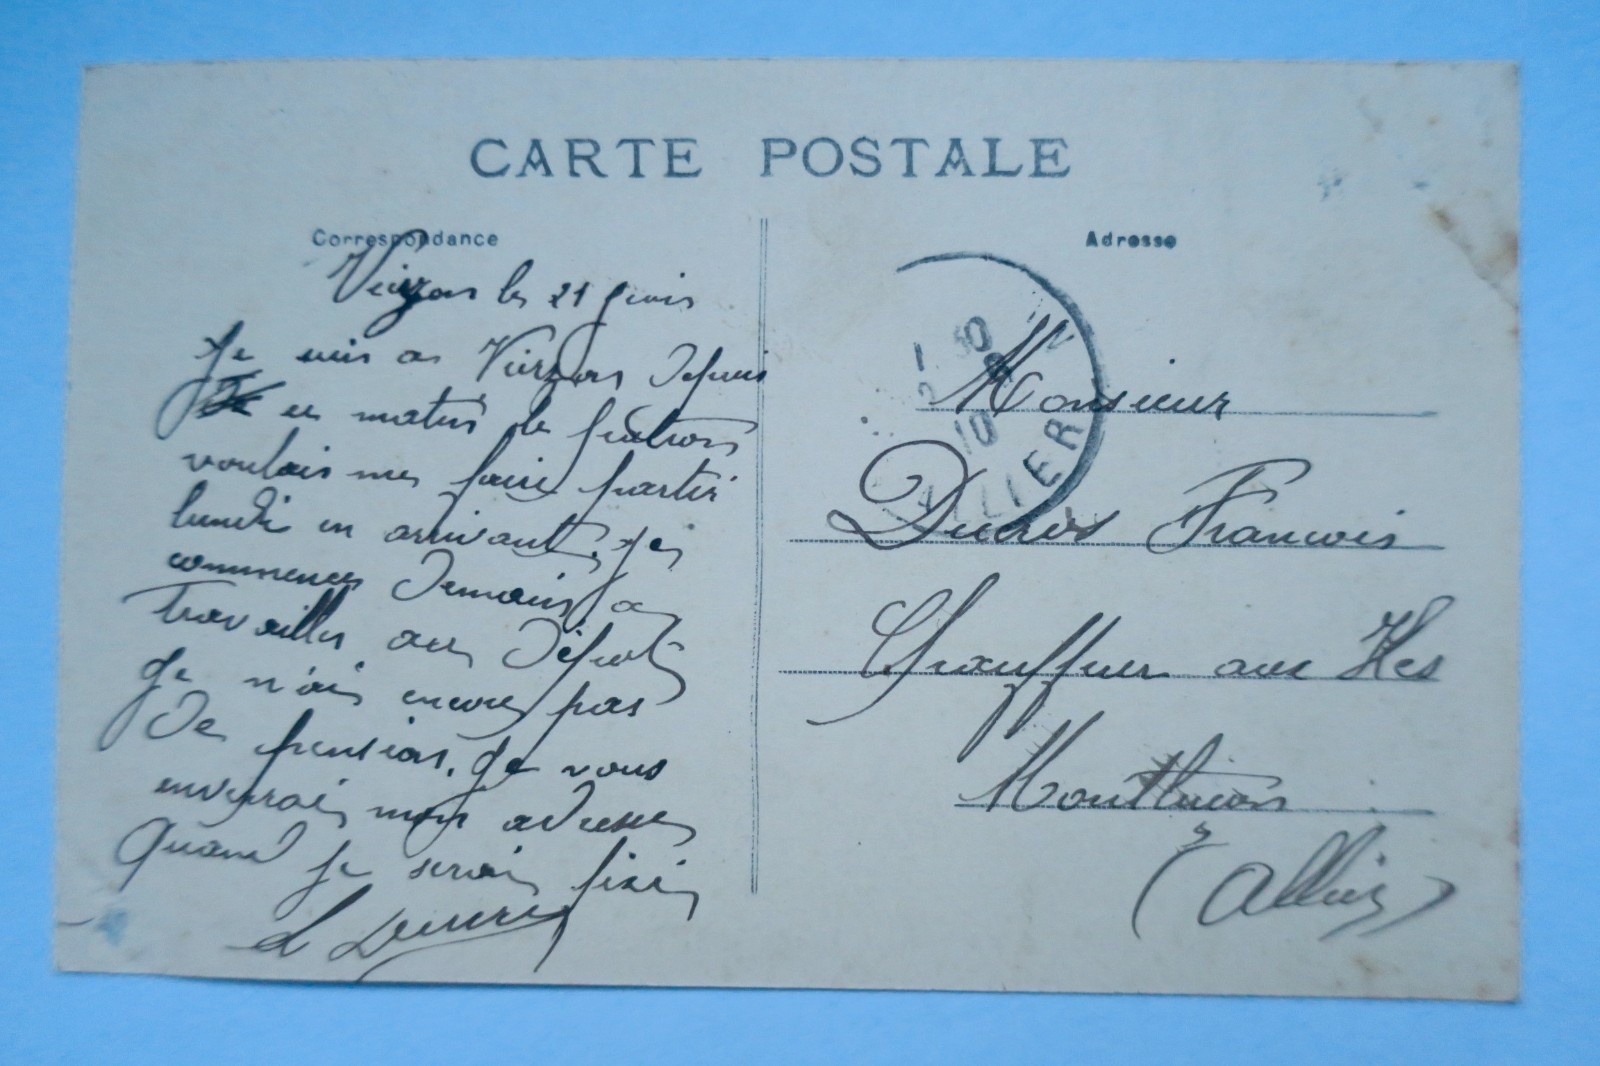 CARTE POSTALE
Correspondance
Adresse
Vierzon le 21 juin
Je suis a Vierzon depuis
ce matin le patron
voulais me faire partir
lundi en arrivant. je
commence demain a
travailler au Dépot
Je n'ai encore pas
de pension. Je vous
enverrai mon adresse
Quand je serai fixé
L Ducros
1 30
10
ALLIER
Monsieur
Ducros Francois
Chauffeur aux Iles
Montlucon
(Allier)